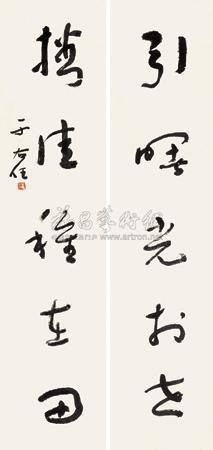 引曙光於世
播佳種在田
于右任
雅昌藝術網
www.artron.net